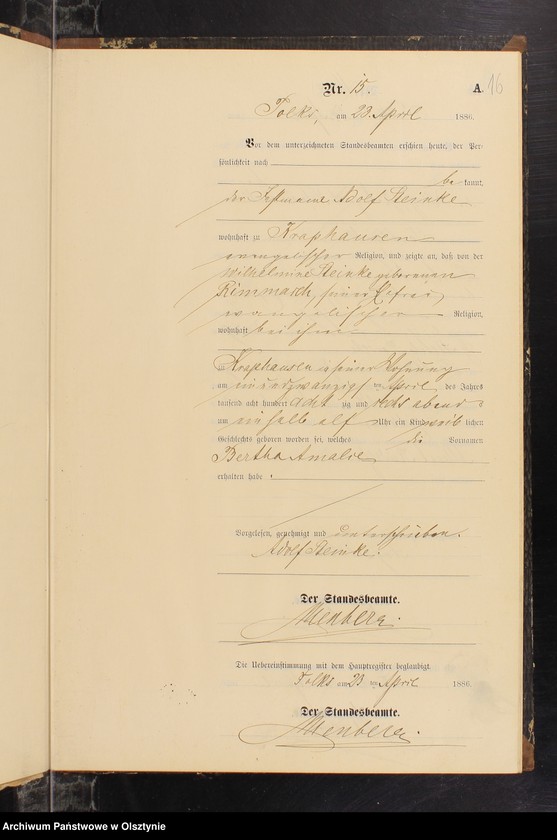 Nr. 15.
A. 16
Tolks, am 23. April 1886.
Vor dem unterzeichneten Standesbeamten erschien heute, der Per-
sönlichkeit nach
be kannt,
der Instmann Adolf Steinke
wohnhaft zu Kraphausen
evangelischer Religion, und zeigte an, daß von der
Wilhelmine Steinke geborenen
Rimmasch, seiner Ehefrau
evangelischer Religion,
wohnhaft bei ihm
zu Kraphausen in seiner Wohnung
am ein und zwanzigsten April des Jahres
tausend acht hundert acht zig und sechs abends
um einhalb elf Uhr ein Kind weib lichen
Geschlechts geboren worden sei, welches die Vornamen
Bertha Amalie
erhalten habe.
Vorgelesen, genehmigt und unterschrieben.
Adolf Steinke.
Der Standesbeamte.
Die Uebereinstimmung mit dem Hauptregister beglaubigt.
Tolks am 23 ten April 1886.
Der Standesbeamte.
Archiwum Państwowe w Olsztynie